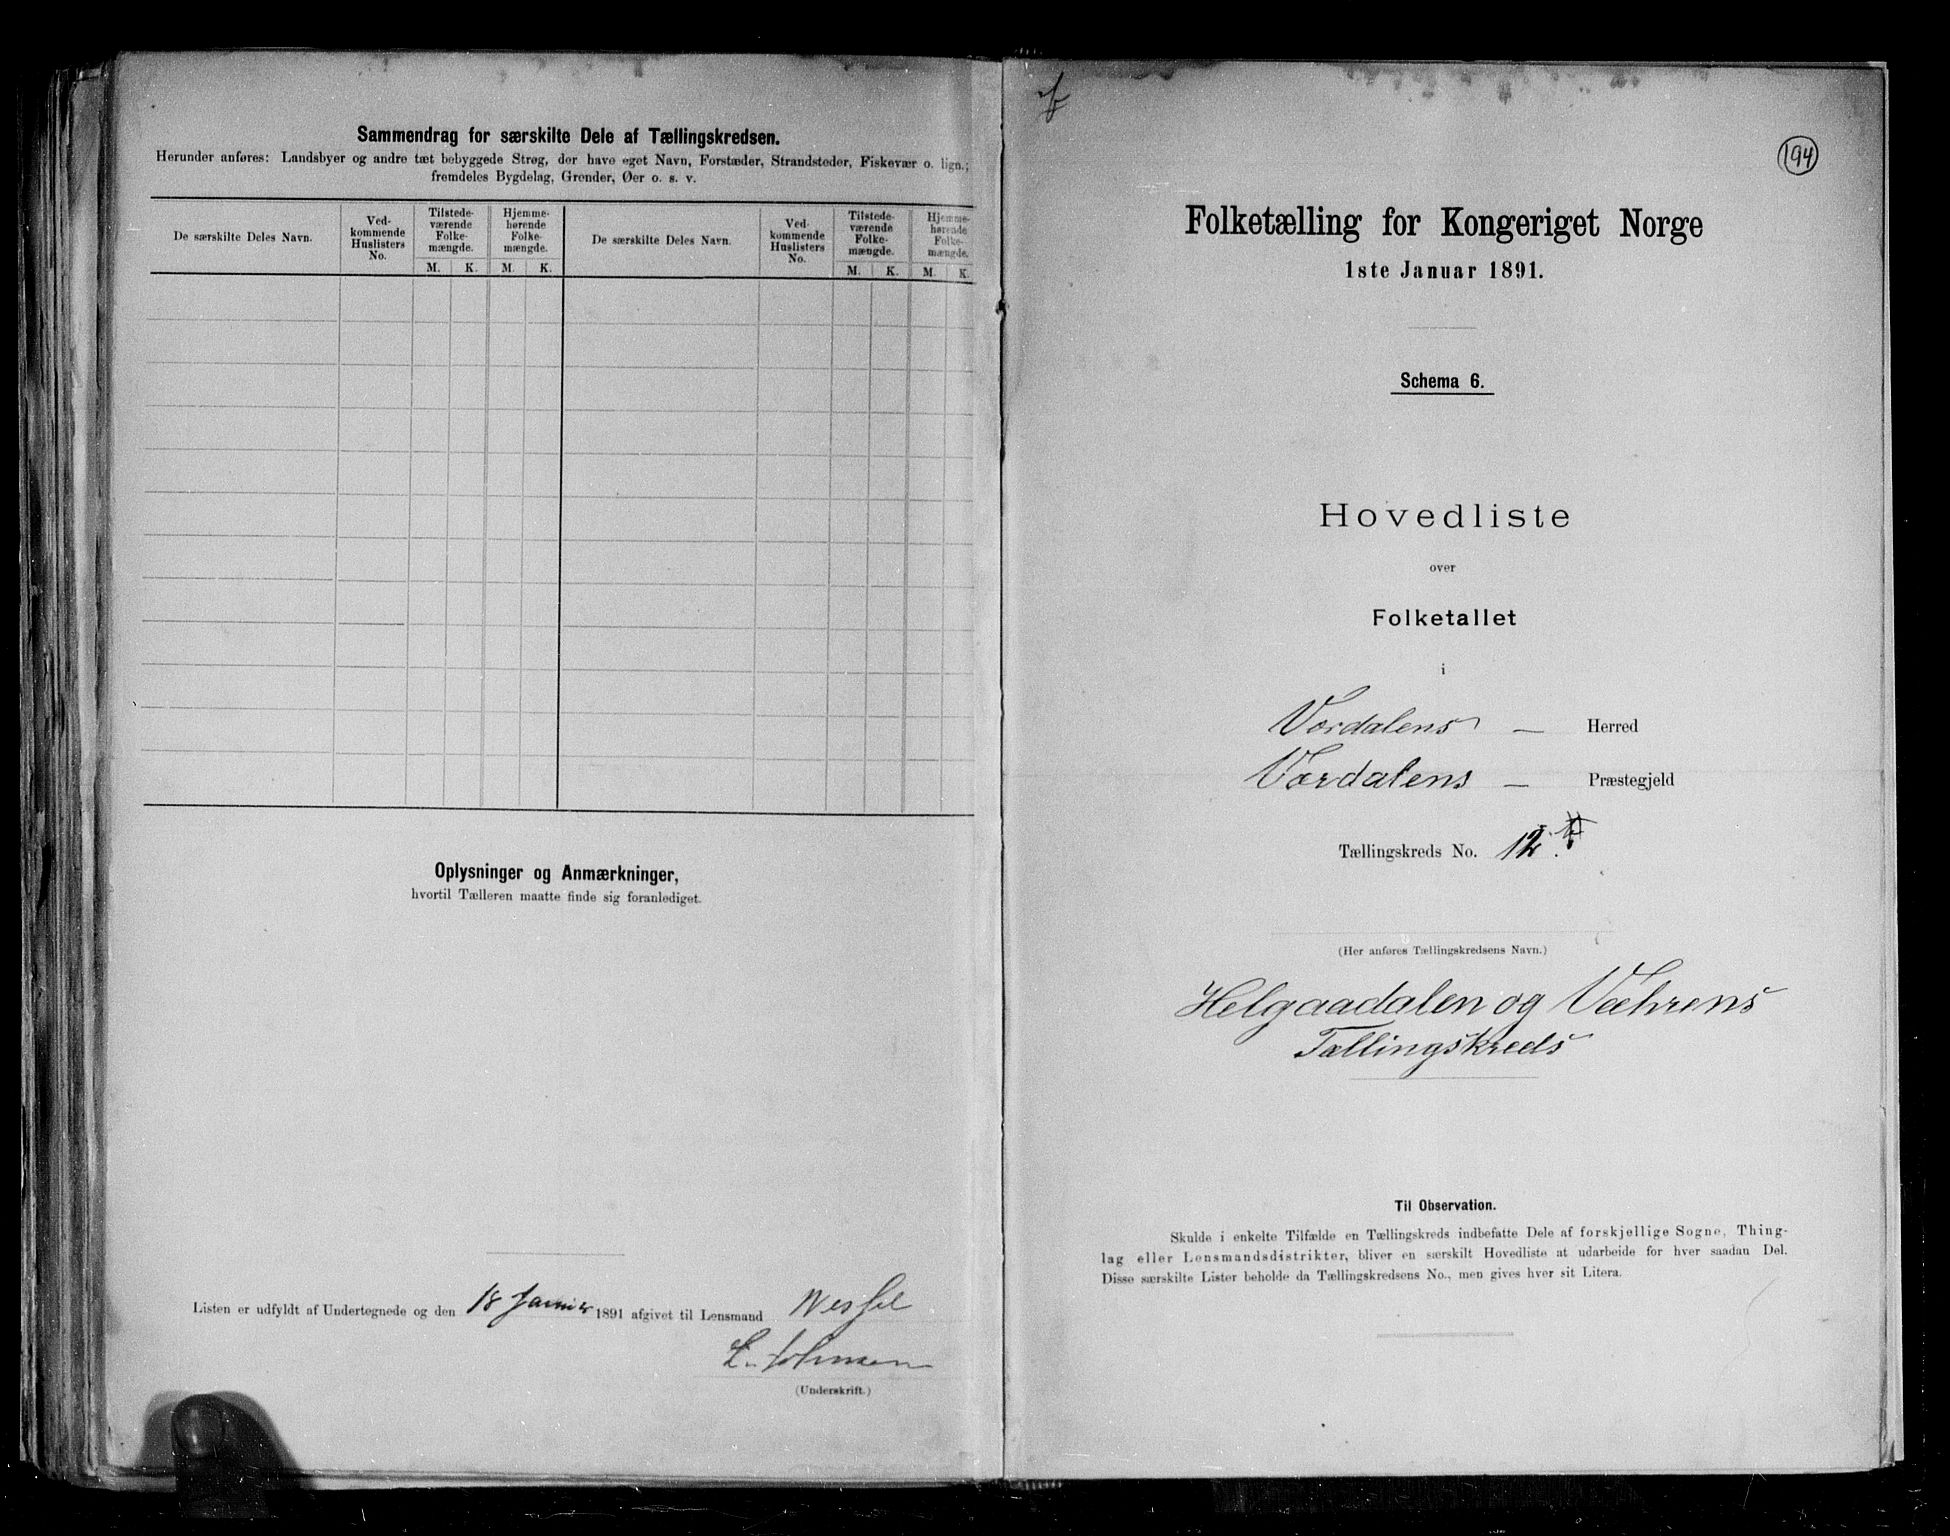 Sammendrag for særskilte Dele af Tællingskredsen.
Herunder anføres: Landsbyer og andre tæt bebyggede Strøg, der have eget Navn, Forstæder, Strandsteder, Fiskevær o. lign.;
fremdeles Bygdelag, Grender, Øer o. s. v.
De særskilte Deles Navn.
Ved-
kommende
Huslisters
No.
Tilstede-
værende
Folke-
mængde.
Hjemme-
hørende
Folke-
mængde.
M. K. M. K.
De særskilte Deles Navn.
Ved-
kommende
Huslisters
No.
Tilstede-
værende
Folke-
mængde.
Hjemme-
hørende
Folke-
mængde.
M. K. M. K.
Oplysninger og Anmærkninger,
hvortil Tælleren maatte finde sig foranlediget.
Listen er udfyldt af Undertegnede og den 18 Januar 1891 afgivet til Lensmand Wessel
L. Johnsen
(Underskrift.)
194
Folketælling for Kongeriget Norge
1ste Januar 1891.
Schema 6.
Hovedliste
over
Folketallet
i
Værdalens — Herred
Værdalens — Præstegjeld
Tællingskreds No. 12
(Her anføres Tællingskredsens Navn.)
Helgaadalen og Væhrens
Tællingskreds
Til Observation.
Skulde i enkelte Tilfælde en Tællingskreds indbefatte Dele af forskjellige Sogne, Thing-
lag eller Lensmandsdistrikter, bliver en særskilt Hovedliste at udarbeide for hver saadan Del.
Disse særskilte Lister beholde da Tællingskredsens No., men gives hver sit Litera.